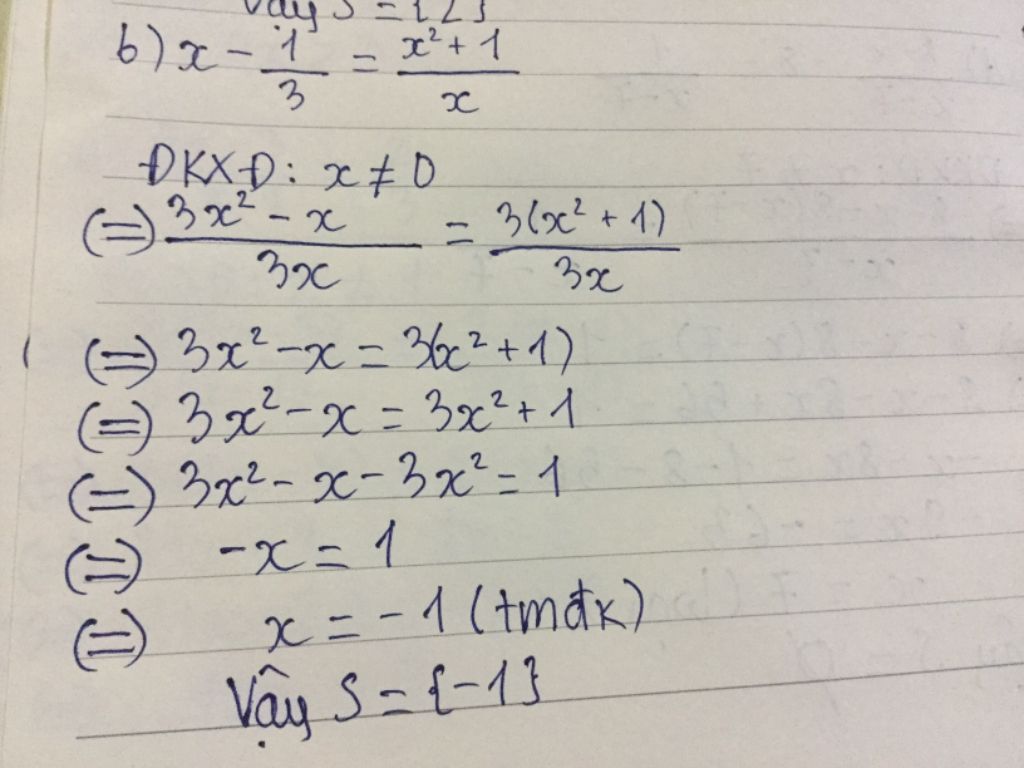 Vậy S = {2}
b) x - 1/3 = x² + 1/x
ĐKXĐ: x ≠ 0
(=) 3x² - x/3x = 3(x² + 1)/3x
(=) 3x² - x = 3(x² + 1)
(=) 3x² - x = 3x² + 1
(=) 3x² - x - 3x² = 1
(=) -x = 1
(=) x = -1 (tmđk)
Vậy S = {-1}